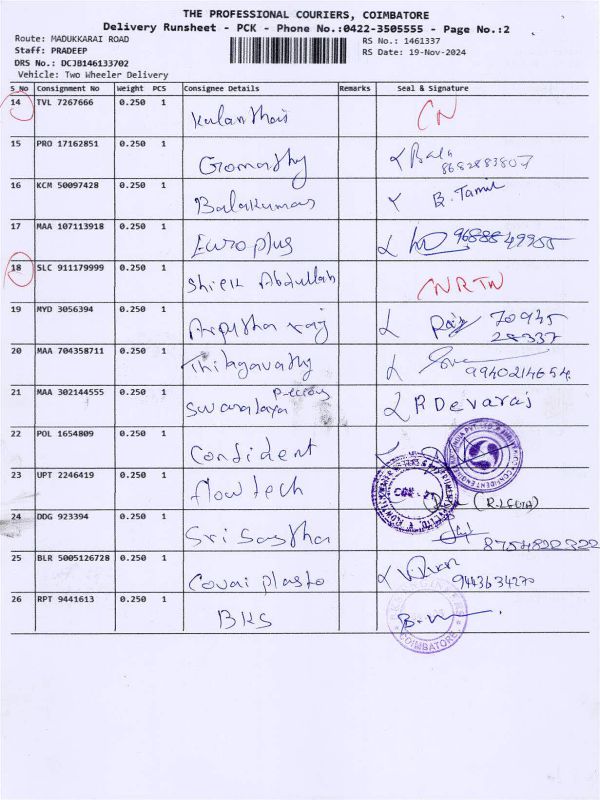 THE PROFESSIONAL COURIERS, COIMBATORE
Delivery Runsheet - PCK - Phone No.:0422-3505555 - Page No.:2
Route: MADUKKARAI ROAD
RS No.: 1461337
Staff: PRADEEP
RS Date: 19-Nov-2024
DRS No.: DCJB146133702
Vehicle: Two Wheeler Delivery
S_No Consignment No Weight PCS Consignee Details Remarks Seal & Signature
14 TVL 7267666 0.250 1 CN
15 PRO 17162851 0.250 1 Gomathy Bala
8682883807
16 KCM 50097428 0.250 1 Balakumar B. Tamil
17 MAA 107113918 0.250 1 Euro plus
18 SLC 911179999 0.250 1 Shiek Abdullah NRTN
19 MYD 3056394 0.250 1 Arputha raj Raj 70945
28337
20 MAA 704358711 0.250 1 Thilagavathy
9940214654
21 MAA 302144555 0.250 1 Swaralaya Precious R Devaraj
22 POL 1654809 0.250 1 Confident
23 UPT 2246419 0.250 1 flowtech
24 DDG 923394 0.250 1 Sri Sastha
25 BLR 5005126728 0.250 1 Covai plasto
9443634270
26 RPT 9441613 0.250 1 BKS
COIMBATORE